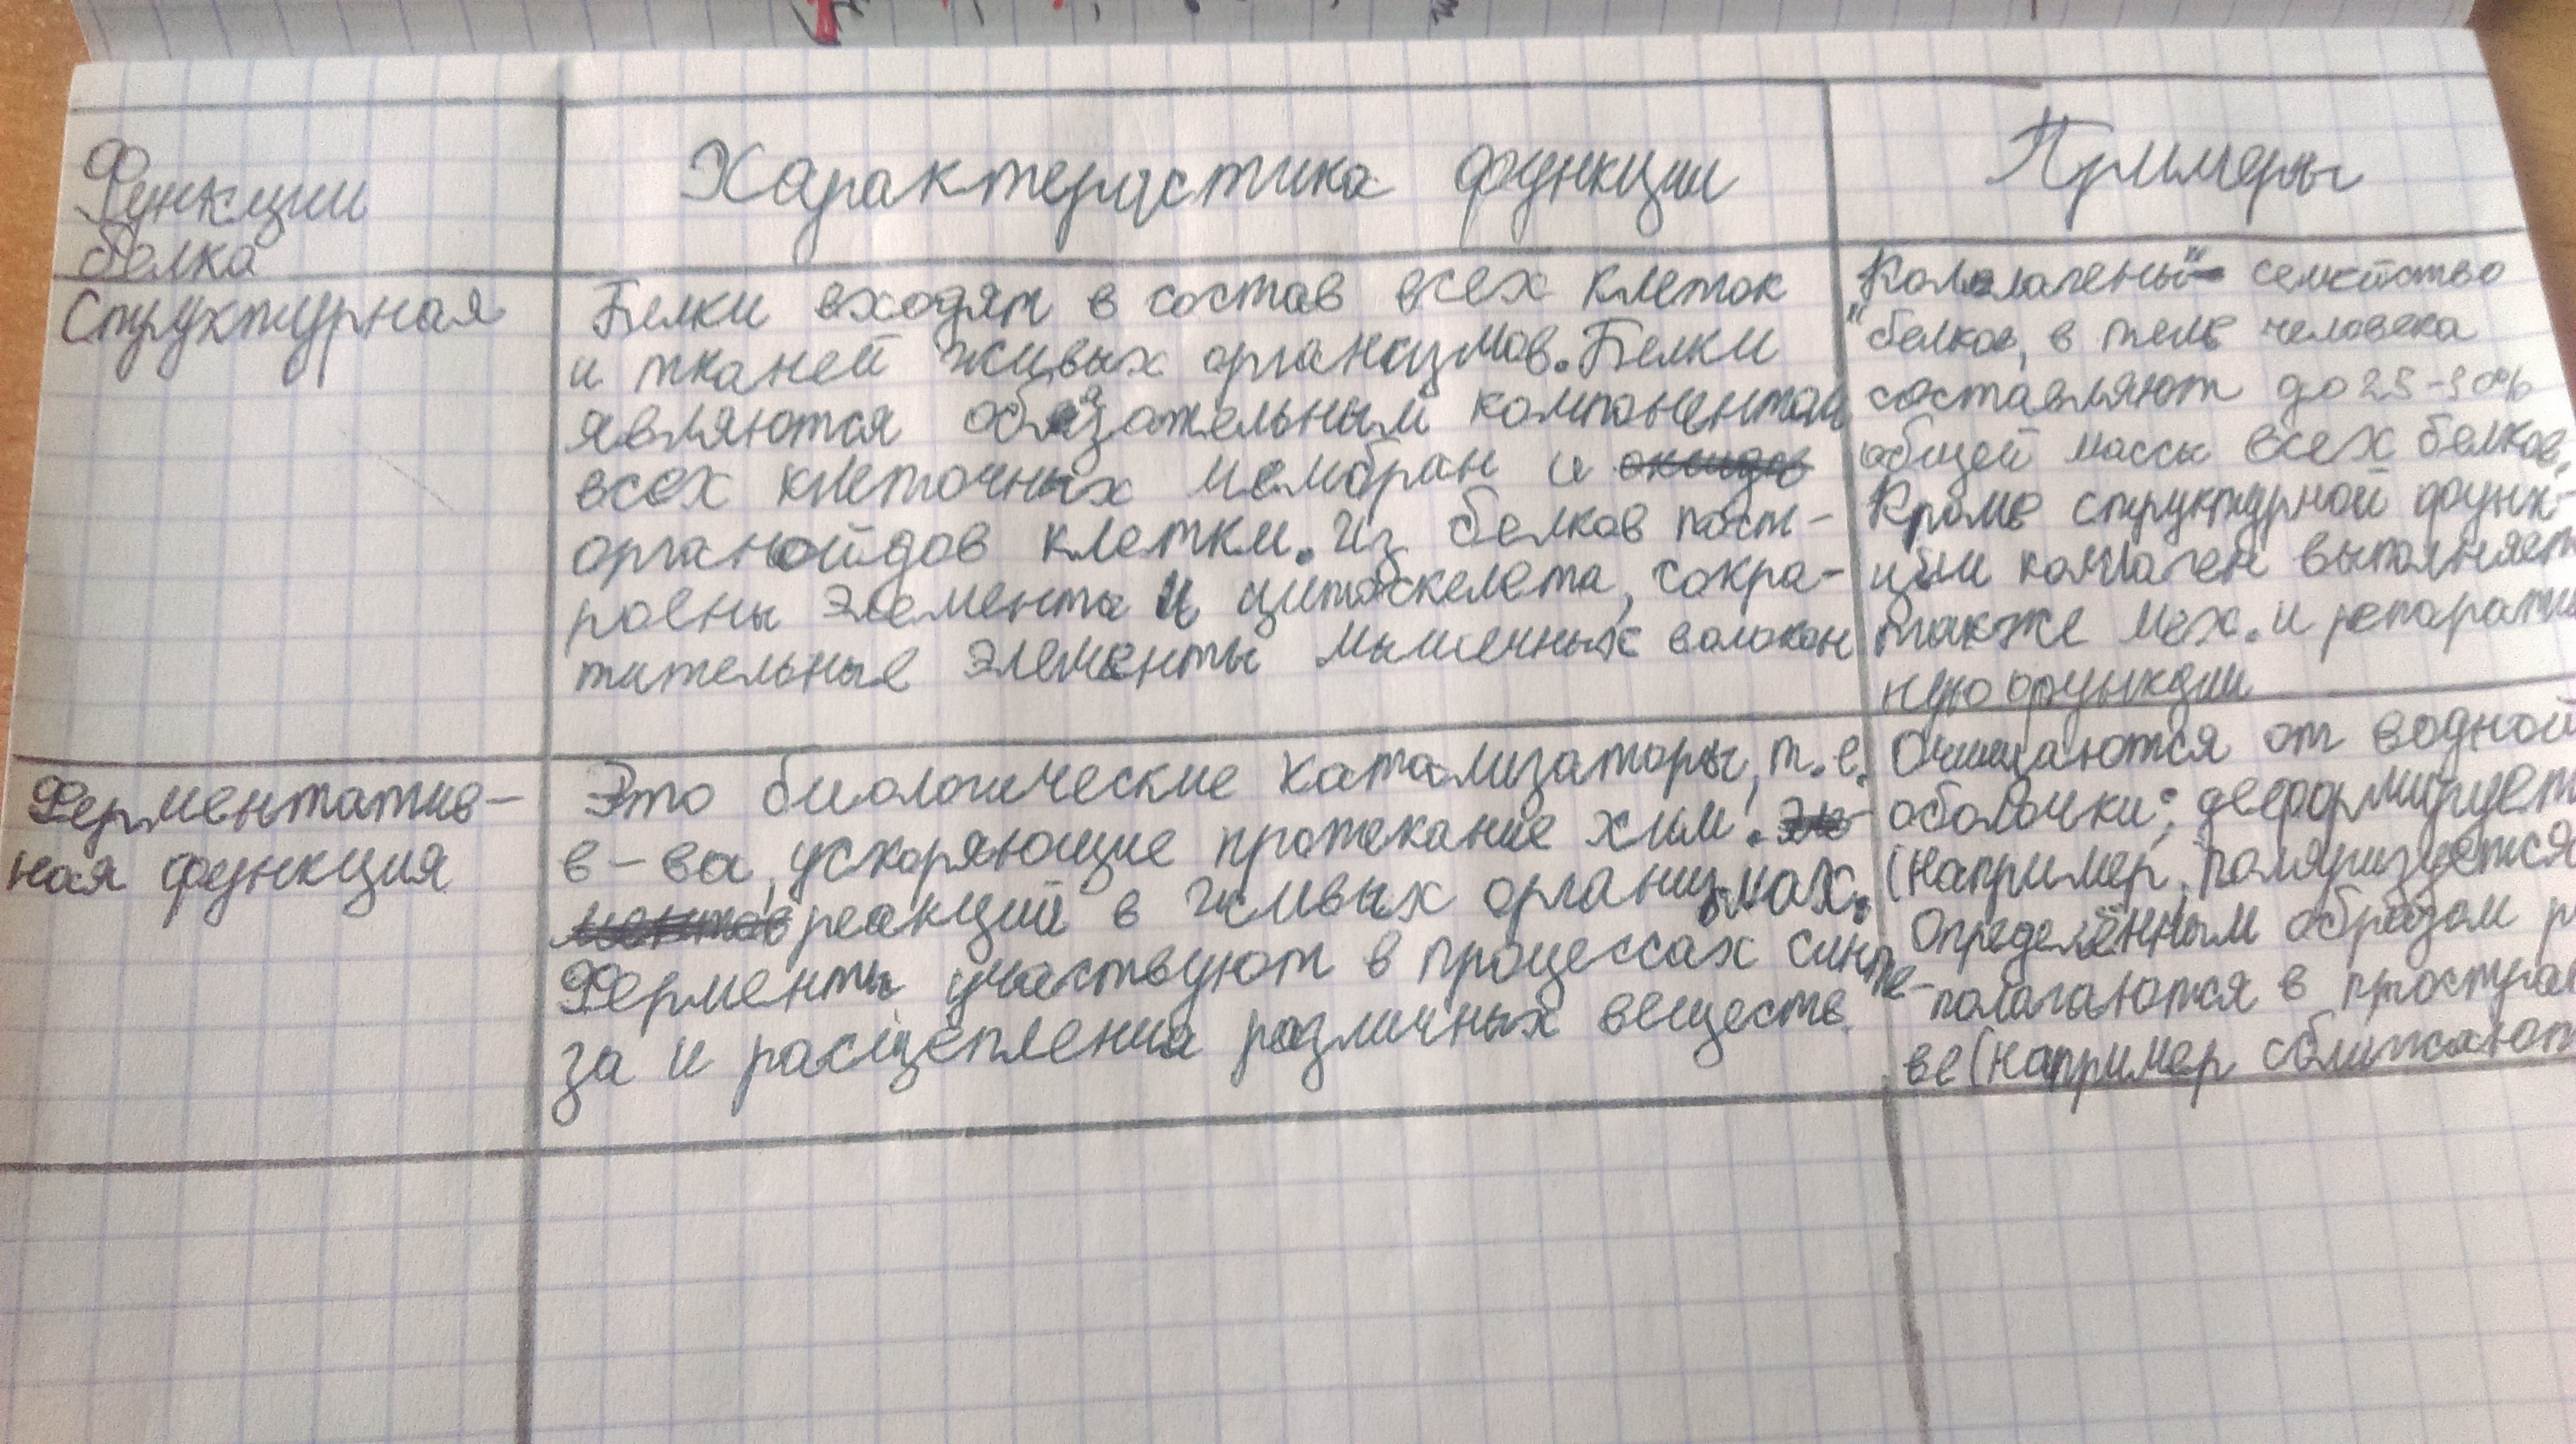 Функции
белка
Характеристика функции
Примеры
Структурная
Белки входят в состав всех клеток
и тканей живых организмов. Белки
являются обязательным компонентом
всех клеточных мембран и
органойдов клетки. Из белков пост-
роены элементы и цитоскелета, сокра-
тительные элементы мышечных волокон
"Коллагены" семейство
белков, в теле человека
составляют до 25-30%
общей массы всех белков.
Кроме структурной функ-
ции коллаген выполняет
также мех. и репаратив
ную функции
Ферментатив-
ная функция
Это биологические катализаторы, т.е.
в-ва, ускоряющие протекание хим.
реакций в живых организмах.
Ферменты участвуют в процессах синте-
за и расщепления различных веществ
Очищаются от водной
оболочки; деформирует
(например, поляризуется
определённым образом р
полагаются в простран
ве (например сближают